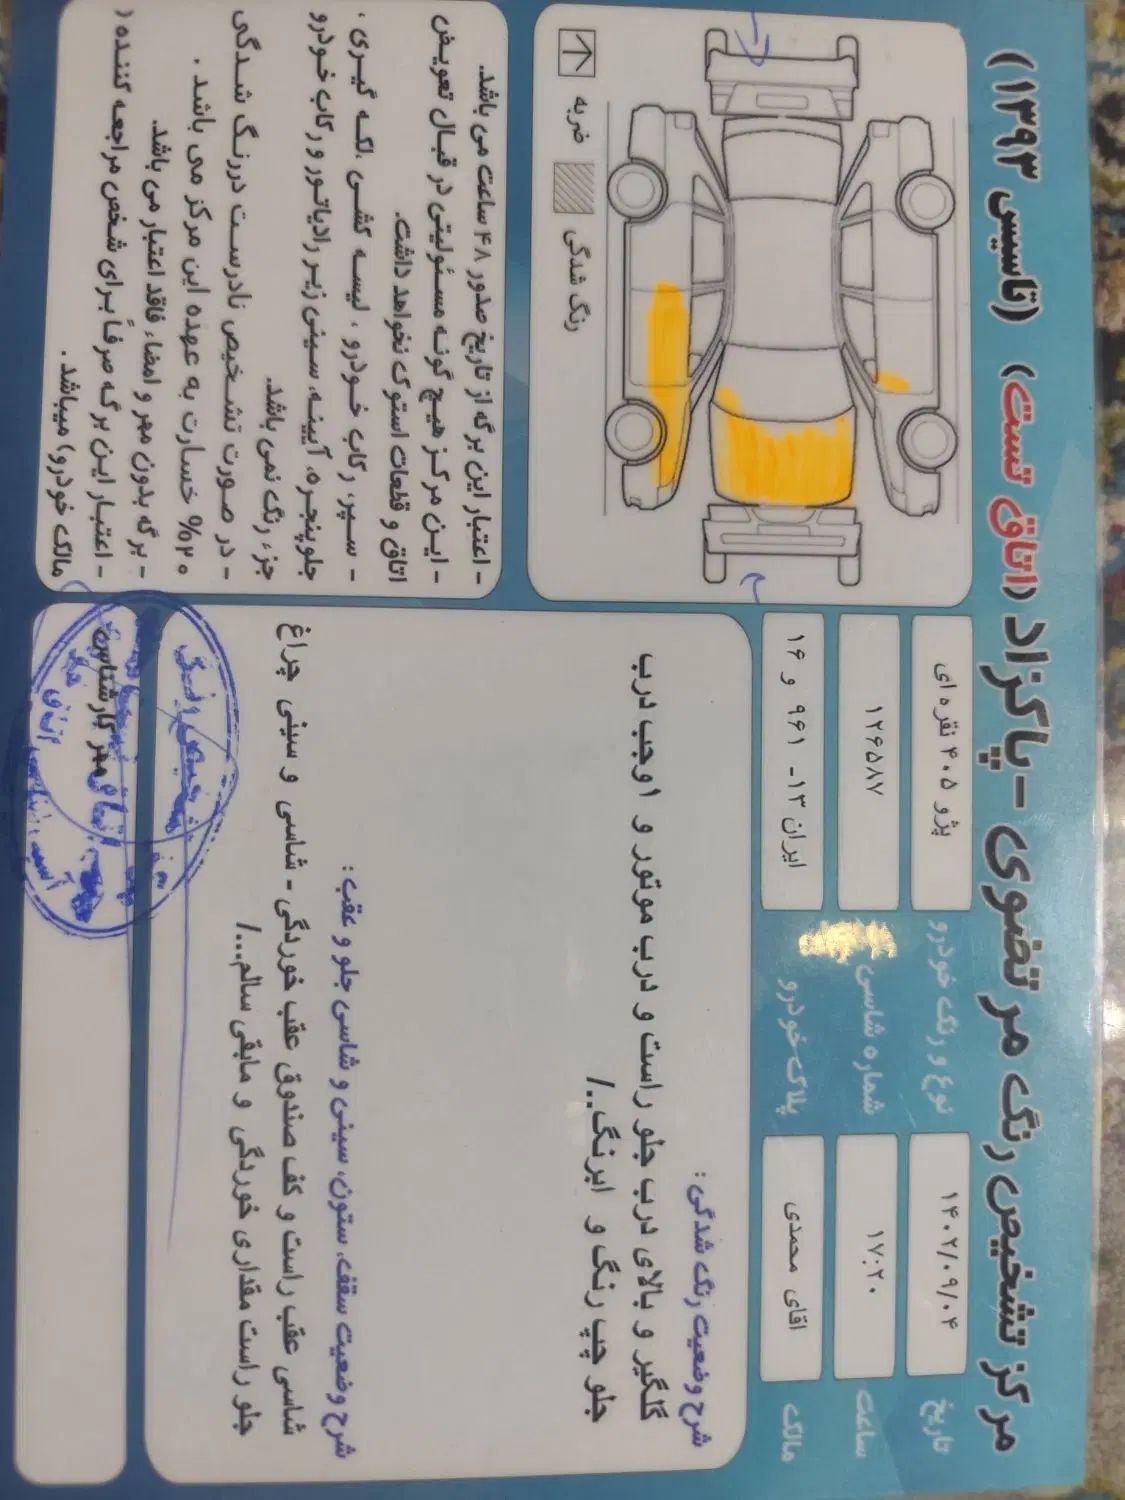 مرکز تشخیص رنگ مرتضوی - پاکزاد (اتاق تست) (تاسیس ۱۳۹۳)
تاریخ ۱۴۰۲/۰۹/۰۴
نوع و رنگ خودرو پژو ۴۰۵ نقره ای
ساعت ۱۷:۲۰
شماره شاسی ۱۲۶۵۸۷
مالک اقای محمدی
پلاک خودرو ایران ۱۳- ۹۶۱ و ۱۶
شرح وضعیت رنگ شدگی :
گلگیر و بالای درب جلو راست و درب موتور و ۱وجب درب
جلو چپ رنگ و ابرنگ../
شرح وضعیت سقف، ستون، سینی و شاسی جلو و عقب :
شاسی عقب راست و کف صندوق عقب خوردگی - شاسی و سینی چراغ
جلو راست مقداری خوردگی و مابقی سالم.../
ضربه
رنگ شدگی
- اعتبار این برگه از تاریخ صدور ۴۸ ساعت می باشد.
- این مرکز هیچ گونه مسئولیتی در قبال تعویض
اتاق و قطعات استوک نخواهد داشت.
- سپر، رکاب خودرو ، لیسه کشی ،لکه گیری ،
جلوپنجره، آیینه، سینی زیر رادیاتور و رکاب خودرو
جزء رنگ نمی باشد.
- در صورت تشخیص نادرست دررنگ شدگی
۲۰% خسارت به عهده این مرکز می باشد .
- برگه بدون مهر و امضاء فاقد اعتبار می باشد.
- اعتبار این برگه صرفاً برای شخص مراجعه کننده (
مالک خودرو) میباشد .
مهر کارشناس